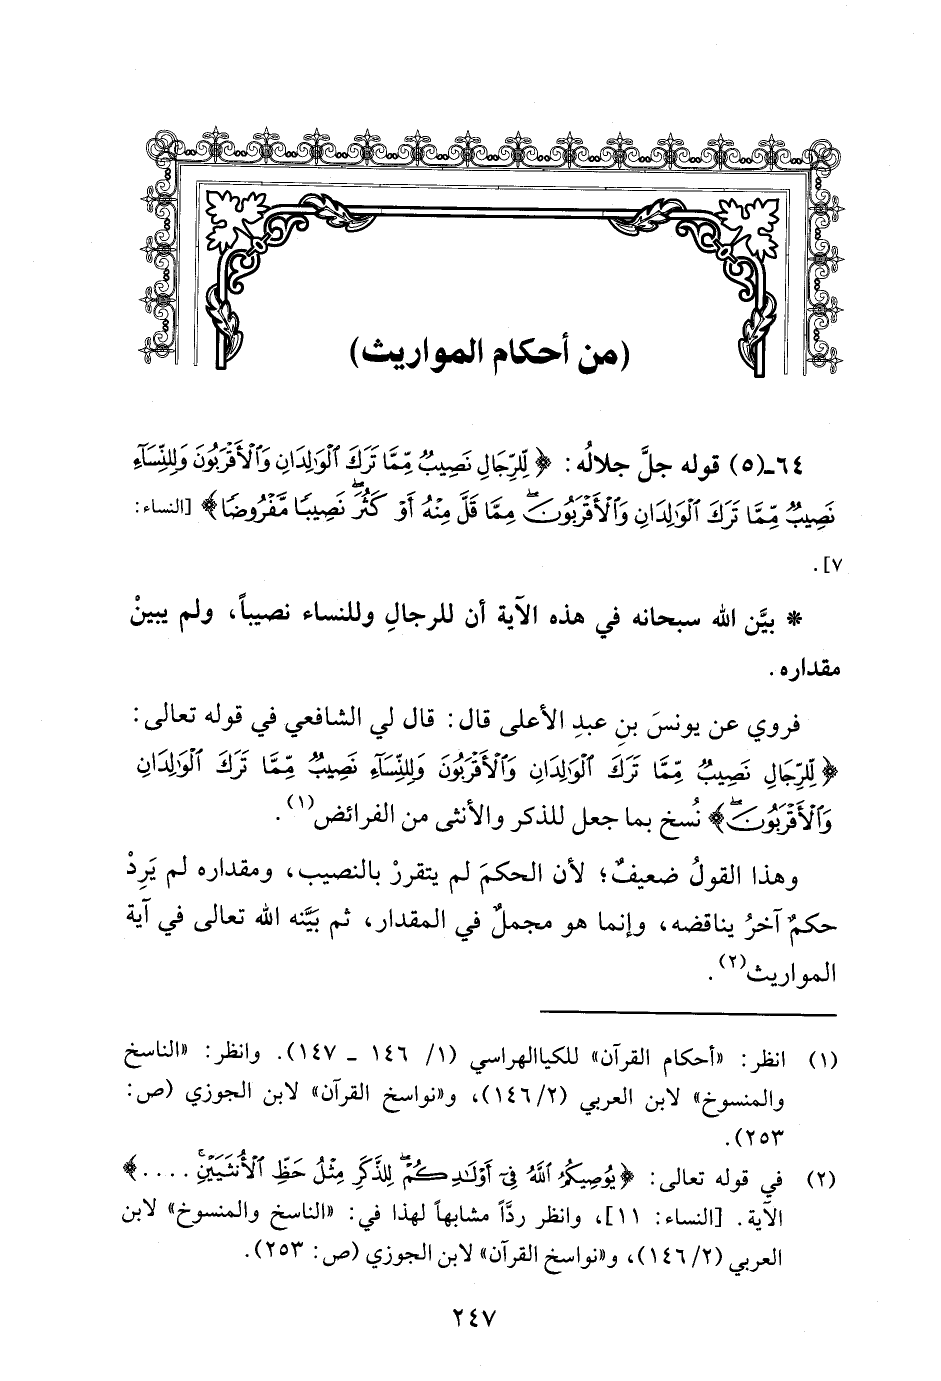 (من أحكام المواريث)
٦٤ـ(٥) قوله جلَّ جلالُه: ﴿لِّلرِّجَالِ نَصِيبٌ مِّمَّا تَرَكَ ٱلْوَٰلِدَانِ وَٱلْأَقْرَبُونَ وَلِلنِّسَآءِ
نَصِيبٌ مِّمَّا تَرَكَ ٱلْوَٰلِدَانِ وَٱلْأَقْرَبُونَ مِمَّا قَلَّ مِنْهُ أَوْ كَثُرَ ۚ نَصِيبًا مَّفْرُوضًا﴾ [النساء:
٧].
* بيَّن الله سبحانه في هذه الآية أن للرجالِ وللنساء نصيباً، ولم يبينْ
مقداره.
فروي عن يونسَ بنِ عبدِ الأعلى قال: قال لي الشافعي في قوله تعالى:
﴿لِّلرِّجَالِ نَصِيبٌ مِّمَّا تَرَكَ ٱلْوَٰلِدَانِ وَٱلْأَقْرَبُونَ وَلِلنِّسَآءِ نَصِيبٌ مِّمَّا تَرَكَ ٱلْوَٰلِدَانِ
وَٱلْأَقْرَبُونَ﴾ نُسخ بما جعل للذكر والأنثى من الفرائض(١).
وهذا القولُ ضعيفٌ؛ لأن الحكمَ لم يتقررْ بالنصيب، ومقداره لم يَرِدْ
حكمٌ آخرُ يناقضه، وإنما هو مجملٌ في المقدار، ثم بَيَّنه الله تعالى في آية
المواريث(٢).
(١) انظر: «أحكام القرآن» للكياالهراسي (١/ ١٤٦ ـ ١٤٧). وانظر: «الناسخ
والمنسوخ» لابن العربي (٢/ ١٤٦)، و«نواسخ القرآن» لابن الجوزي (ص:
٢٥٣).
(٢) في قوله تعالى: ﴿يُوصِيكُمُ ٱللَّهُ فِىٓ أَوْلَٰدِكُمْ ۖ لِلذَّكَرِ مِثْلُ حَظِّ ٱلْأُنثَيَيْنِ ۚ ....﴾
الآية. [النساء: ١١]، وانظر ردَّاً مشابهاً لهذا في: «الناسخ والمنسوخ» لابن
العربي (٢/ ١٤٦)، و«نواسخ القرآن» لابن الجوزي (ص: ٢٥٣).
٢٤٧